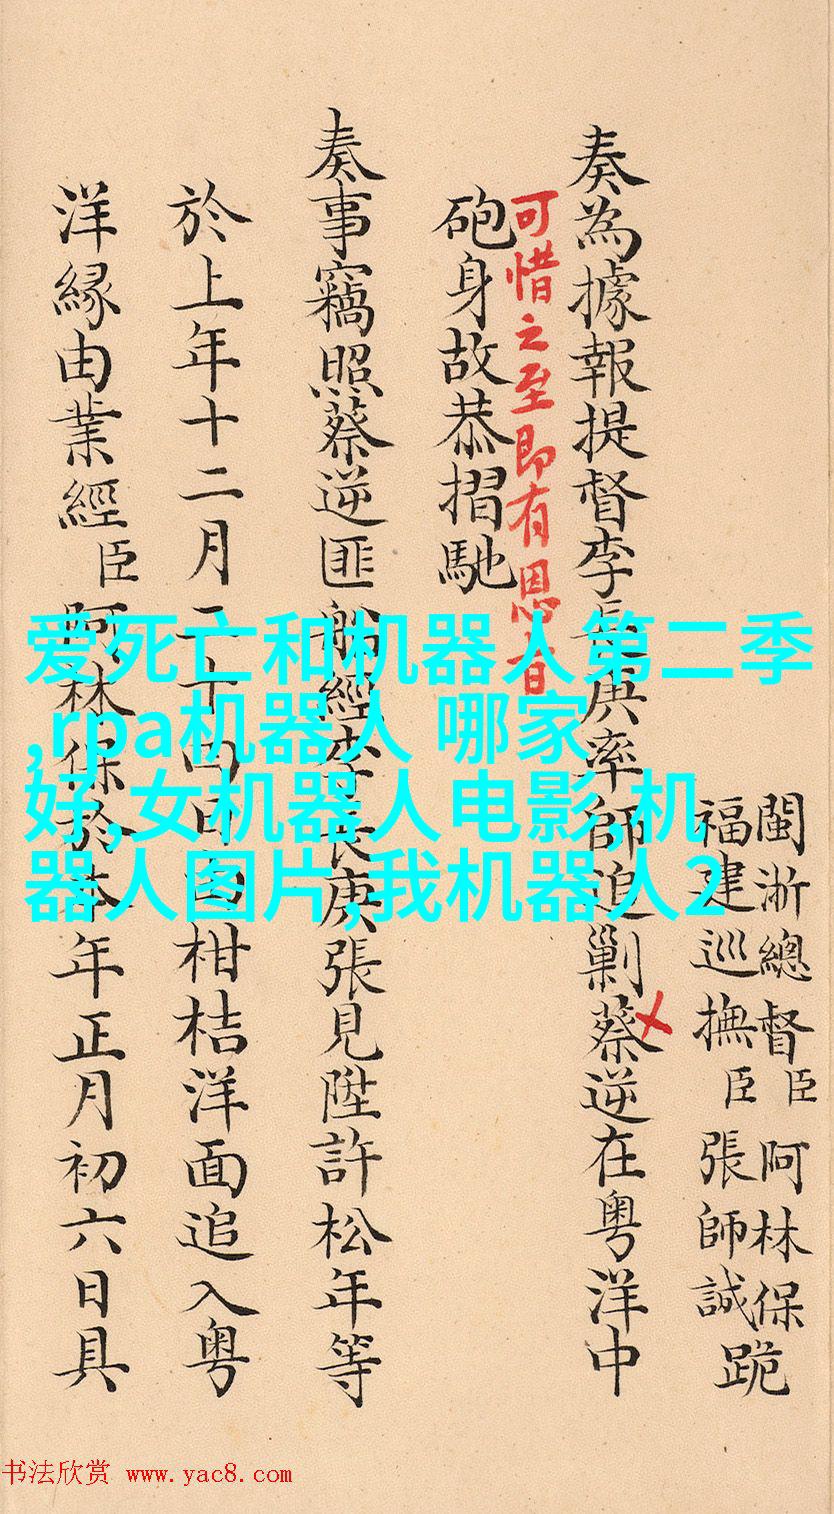 閩浙總督臣阿林保
福建巡撫臣張師誠
跪
奏為據報提督李長庚率師追剿蔡逆在粤洋中
可惜之至即有恩旨
砲身故恭摺馳
奏事竊照蔡逆匪船經李長庚張見陞許松年等
於上年十二月二十四日柑桔洋面追入粤
洋緣由業經臣阿林保於本年正月初六日具
爱死亡和机器人第二季
,rpa机器人 哪家
好,女机器人电影,机
器人图片,我机器人2
书法欣赏 www.yac8.com